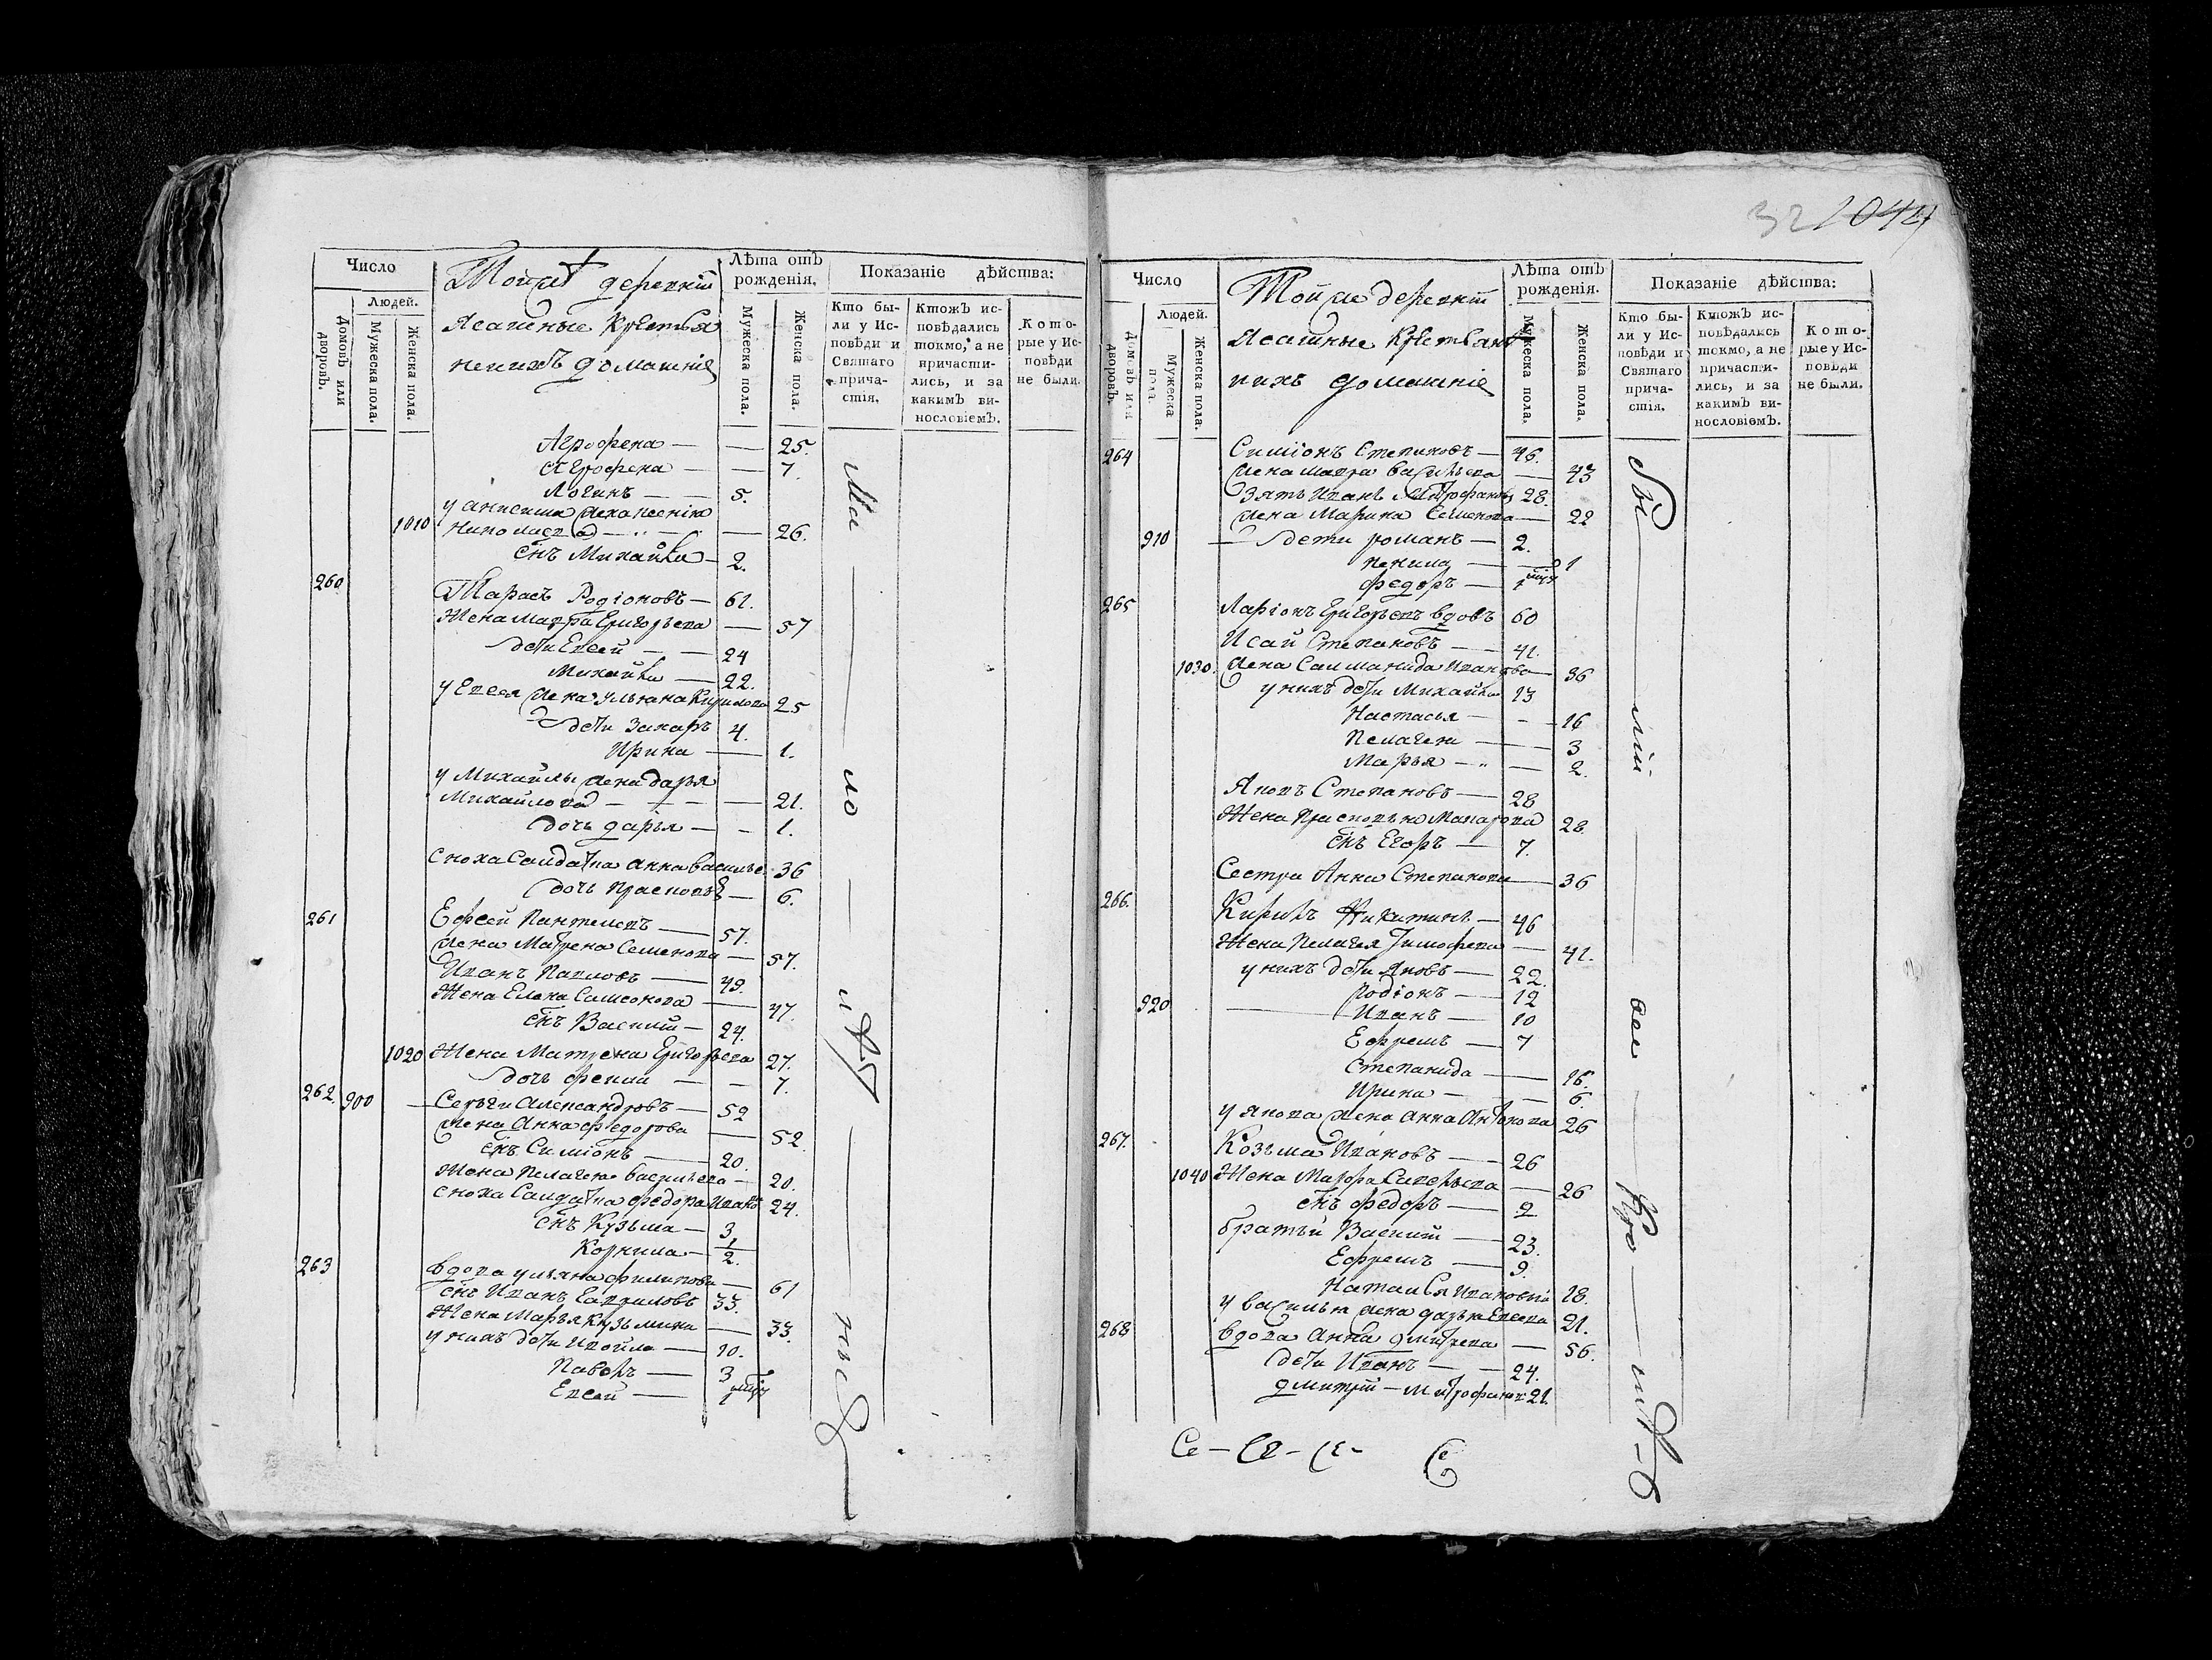 Число
Людей.
Домовъ или дворовъ.
Мужеска пола.
Женска пола.
Тойже деревни
Ясашные Крестья
не ихъ домашнiе
Лѣта отъ рожденiя.
Мужеска пола.
Женска пола.
Показанiе дѣйства:
Кто бы-
ли у Ис-
повѣди и
Святаго
прича-
стiя.
Ктожъ ис-
повѣдались
токмо, а не
причасти-
лись, и за
какимъ ви-
нословiемъ.
Кото-
рые у Ис-
повѣди
не были.
Агрофена — — 25.
Агрофена — — 7.
Логинъ — — 5.
у анисима жена ксенiя
1010 — 26.
снъ Михайла — 2.
260. Тарасъ Родiоновъ — 61.
Жена Мавра Григорьева — 57
дети Евсей — — 24
Михайла — 22.
у Евсея жена ульяна Кирилова 25
дети Захаръ 4.
Ирина — 1.
у Михайлы жена дарья
Михайлова — — — 21.
дочь дарья — — 1.
сноха Салдатка анна васильев. 36
дочь Прасковья — 6.
261 Ефсей Пантелевъ — 57.
жена Матрена Семенова — 57.
Иванъ Павловъ — 49.
Жена Елена Самсонова — 47.
снъ Василiй — 24.
1020 Жена Матрена Григорьева 27.
дочь фекла — — 7.
262. 900 — Сергеи Александровъ — 52
жена Анна федорова — 52
снъ Симiонъ — 20.
Жена Пелагея васильева — 20.
сноха Салдатка федора Иванов 24.
снъ Кузьма — 3
Корнила — 1/2.
263 вдова ульяна филипова — 61
снъ Иванъ Гавриловъ 33.
Жена Марья Кузьмина — 33.
у нихъ дети Ивойла — 10.
Павелъ — 3
Евсей — 1
Ма — ло — лѣ — тны
32 1044
Число
Людей.
Домовъ или дворовъ.
Мужеска пола.
Женска пола.
Тойже деревни
Ясашные Крестьяне
ихъ домашнiе
Лѣта отъ рожденiя.
Мужеска пола.
Женска пола.
Показанiе дѣйства:
Кто бы-
ли у Ис-
повѣди и
Святаго
прича-
стiя.
Ктожъ ис-
повѣдались
токмо, а не
причасти-
лись, и за
какимъ ви-
нословiемъ.
Кото-
рые у Ис-
повѣди
не были.
264 Симiонъ Степановъ — 46.
жена мавра васильева — 43
Зять Иванъ Митрофановъ 28.
жена Марина Семенова — 22
910 — дети романъ — 2.
— 1
федоръ — 1
265 Ларiонъ Григорьевъ вдовъ 60
Исай Степановъ — — 41.
1030. жена Саломанида Иванова — 36
у нихъ дети Михайла 13
Настасья — — 16
Пелагея — — 3
Марья — — 2.
Яковъ Степановъ — 28
Жена Прасковья Макарова 28
снъ Егоръ — 7.
Сестра Анна Степанова — 36
266. Кирилъ Никитинъ — 46
Жена Пелагея Тимофева — 41.
у нихъ дети Яковъ — 22.
Родiонъ — 12
920 — Иванъ — 10
Ефремъ — 7
Степанида — 16.
Ирина — — 6.
у якова жена анна Антонова 26
267. Козьма Ивановъ — 26
1040 Жена Марфа Савельева — 26
снъ федоръ — 2
братьи Василiй — 23.
Ефремъ — 9.
Наталья Ивановы 18.
у василья жена дарья Евсева 21.
268 вдова Анна дмитрева — 56.
дети Иванъ — — 24.
дмитрiй — Митрофановы 21.
Се — Се — Се — Се